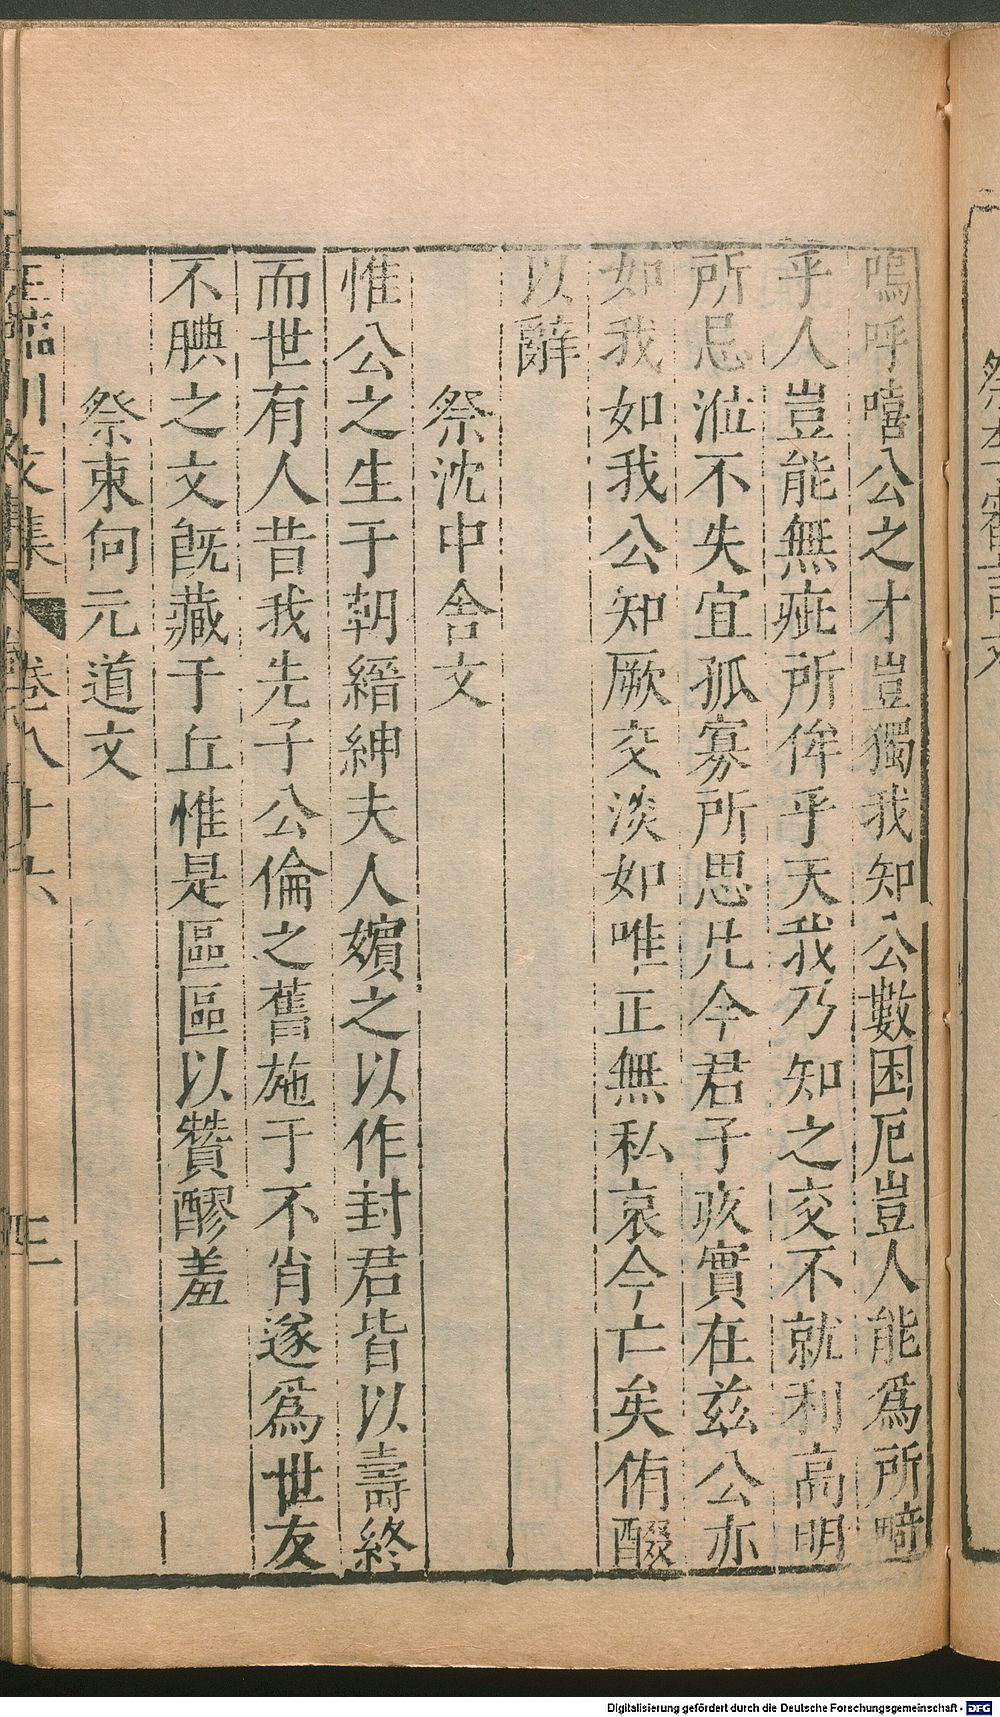 嗚呼嘻公之才豈獨我知公數困厄豈人能爲所畸
乎人豈能無疵所侔乎天我乃知之交不就利高明
所忌涖不失宜孤寡所思凡今君子疚實在兹公亦
如我如我公知厥交淡如唯正無私哀今亡矣侑醊
以辭
祭沈中舍文
惟公之生于朝縉紳夫人嬪之以作封君皆以壽終
而世有人昔我先子公倫之舊施于不肖遂爲世友
不腆之文旣藏于丘惟是區區以贊醪羞
祭束向元道文
王臨川文集 卷八十六 三
Digitalisierung gefördert durch die Deutsche Forschungsgemeinschaft - DFG